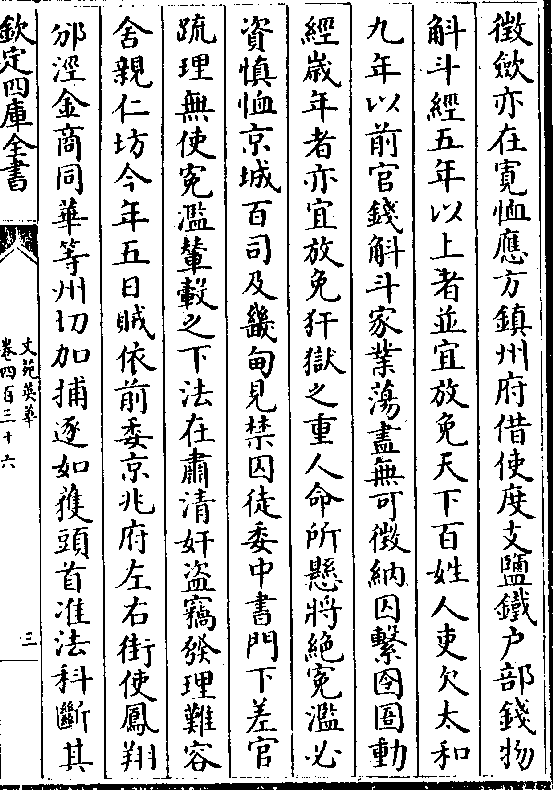 徴歛亦在寛恤應方鎮州府借使度支鹽鐵户部錢物
斛斗經五年以上者並宜放免天下百姓人吏欠太和
九年以前官錢斛斗家業蕩盡無可徴納囚繫囹圄動
經歳年者亦宜放免犴獄之重人命所懸將絶寃濫必
資慎恤京城百司及畿甸見禁囚徒委中書門下差官
疏理無使寃濫輦轂之下法在肅清奸盜竊發理難容
舍親仁坊今年五日賊依前委京兆府左右街使鳳翔
邠涇金商同華等州切加捕逐如獲頭首准法科斷其
欽定四庫全書
文苑英華
卷四百三十六
三